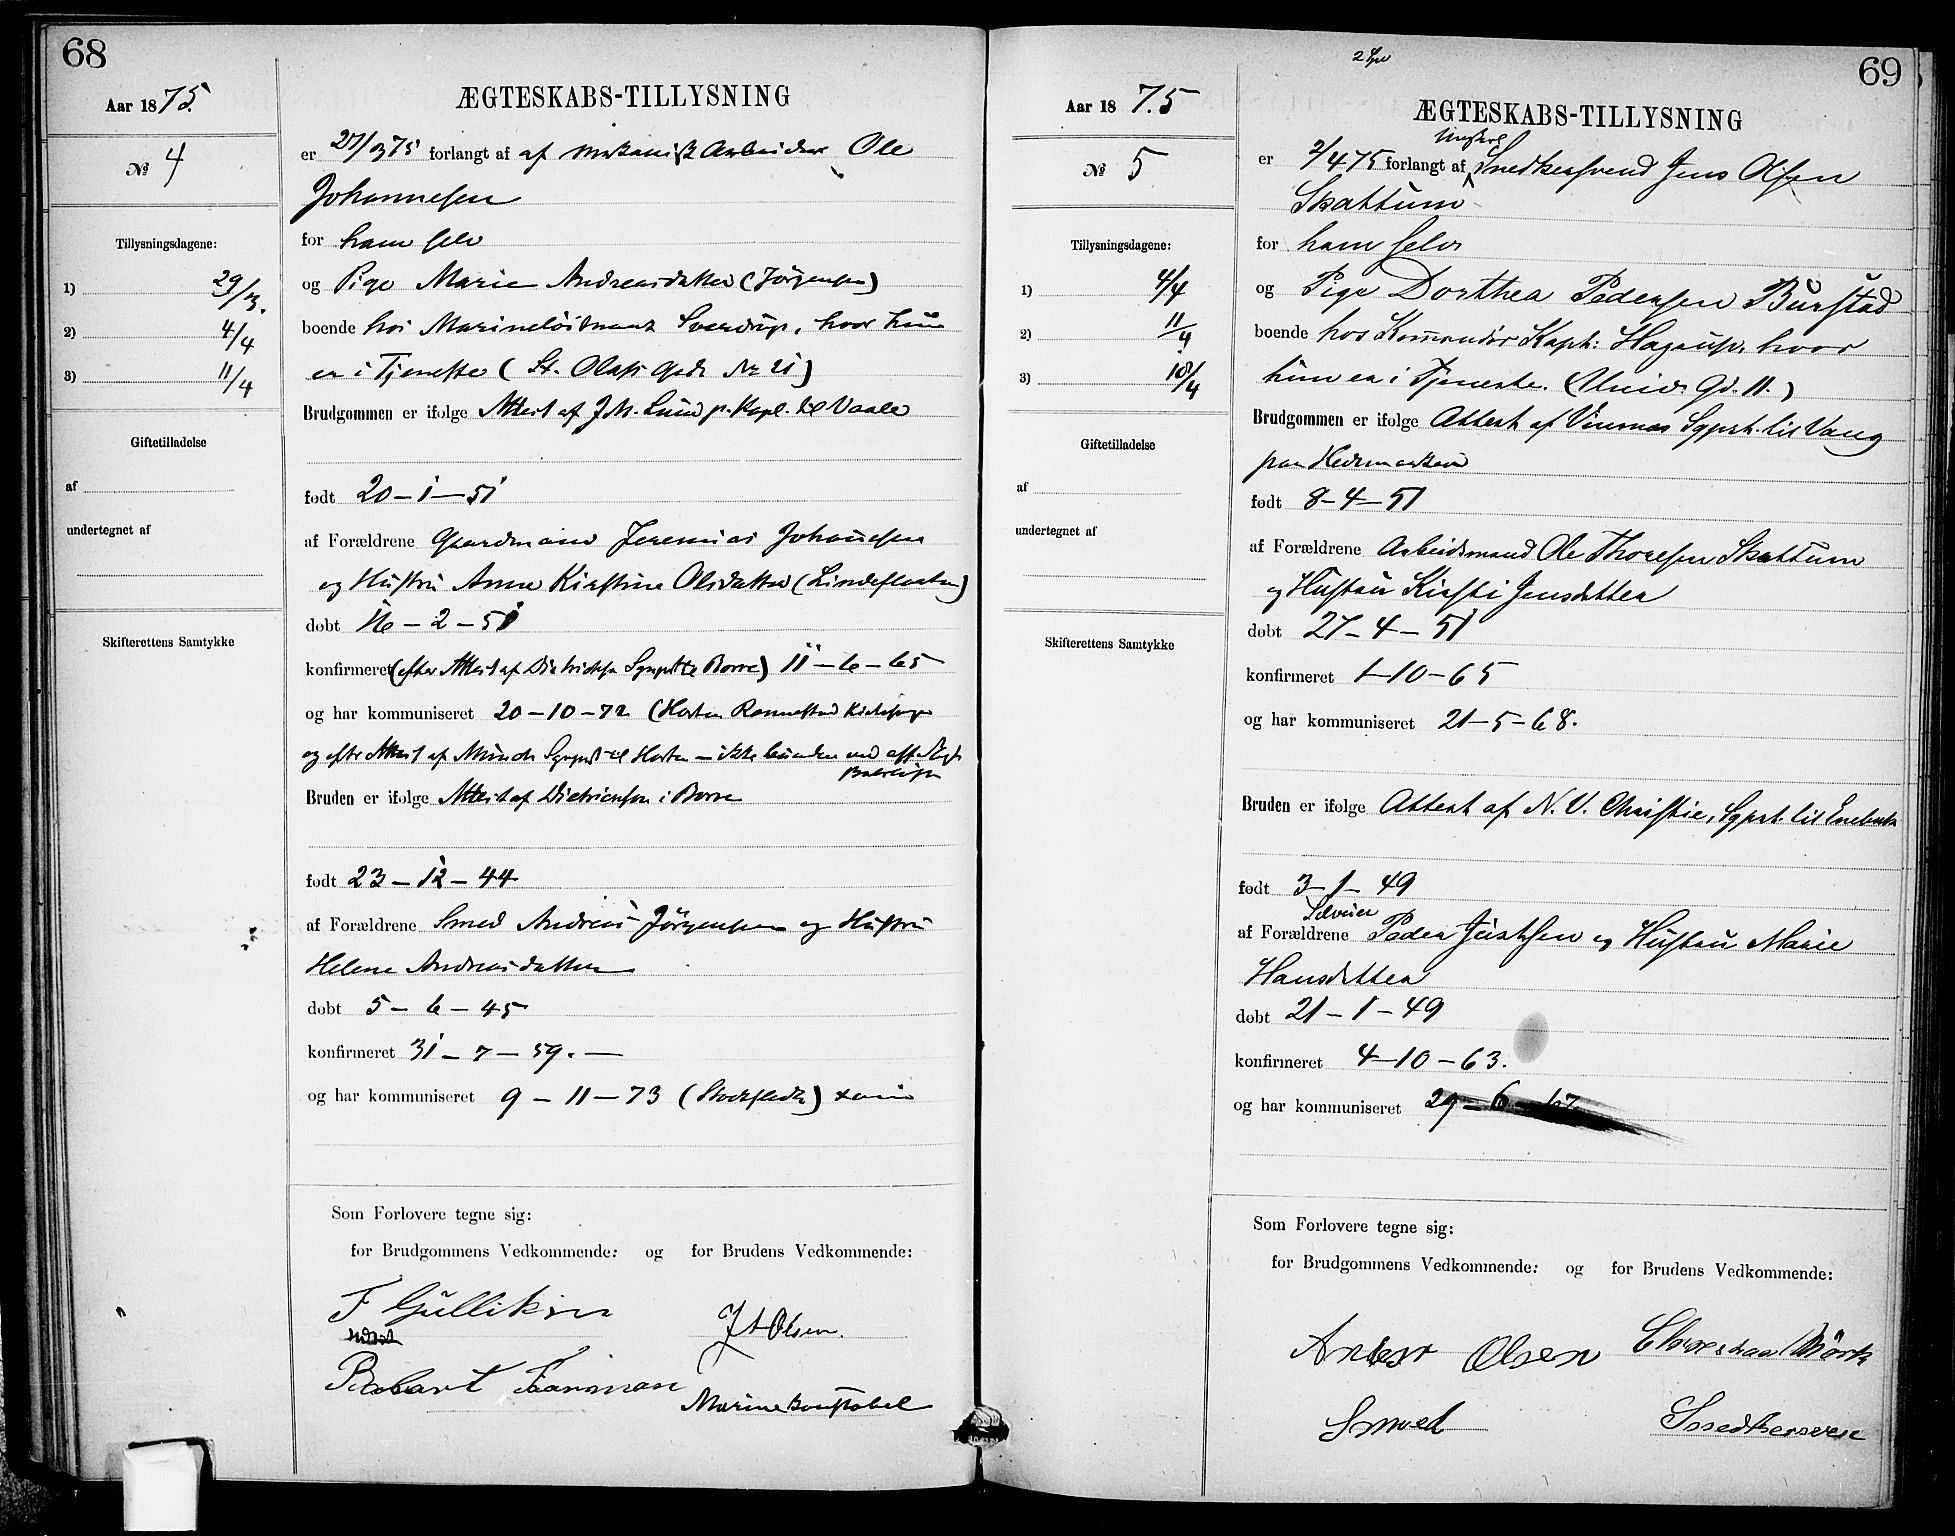 68
Aar 1875.
№ 4
Tillysningsdagene:
1) 29/3.
2) 4/4
3) 11/4
Giftetilladelse
af
undertegnet af
Skifterettens Samtykke
ÆGTESKABS-TILLYSNING
er 27/3 75 forlangt af af mekanisk Arbeider Ole
Johannesen
for ham selv
og Pige Marie Andreasdatter (Jørgensen)
boende hos Marineløitnant Sverdrup, hvor hun
er i Tjeneste (St. Olafs Gade Nr 21)
Brudgommen er ifølge Attest af J. M. Lund p. Kapl. til Vaale
født 20-1-51
af Forældrene Gaardmand Jeremias Johannesen
og Hustru Anne Kirstine Olsdatter
døbt 16-2-51
konfirmeret (efter Attest af Dietrichson Sgprst til Borre) 11-6-65
og har kommuniseret 20-10-72 (Horten
og efter Attest af Munch Sgprst til Horten - ikke bunden ved off.
Bruden er ifølge Attest af Dietrichson i Borre
født 23-12-44
af Forældrene Smed Andreas Jørgensen og Hustru
Helene Andreasdatter
døbt 5-6-45
konfirmeret 31-7-59. —
og har kommuniseret 9-11-73
Som Forlovere tegne sig:
for Brudgommens Vedkommende: og for Brudens Vedkommende:
F Gulliksen
J A Olsen.
Marinekonstabel
69
Aar 1875
№ 5
Tillysningsdagene:
1) 4/4
2) 11/4
3) 18/4
Giftetilladelse
af
undertegnet af
Skifterettens Samtykke
ÆGTESKABS-TILLYSNING
Ungkarl
er 2/4 75 forlangt af Snedkersvend Jens Olsen
Skattum
for ham selv
og Pige Dorthea Pedersen Burstad
boende hos Kommandør Kapt: Hagerup, hvor
hun er i Tjeneste. (Univ. Gd. 11.)
Brudgommen er ifølge Attest af Sgprst. til Vang
paa Hedemarken
født 8-4-51
af Forældrene Arbeidsmand Ole Thoresen Skattum
og Hustru Kirsti Jensdatter
døbt 27-4-51
konfirmeret 1-10-65
og har kommuniseret 21-5-68.
Bruden er ifølge Attest af N. V. Christie, Sgprst. til Enebak
født 3-1-49
Selveier
af Forældrene Peder Justsen og Hustru Marie
Hansdatter
døbt 21-1-49
konfirmeret 4-10-63.
og har kommuniseret 29-6-67
Som Forlovere tegne sig:
for Brudgommens Vedkommende: og for Brudens Vedkommende:
Olsen
Smed
Snedkersven